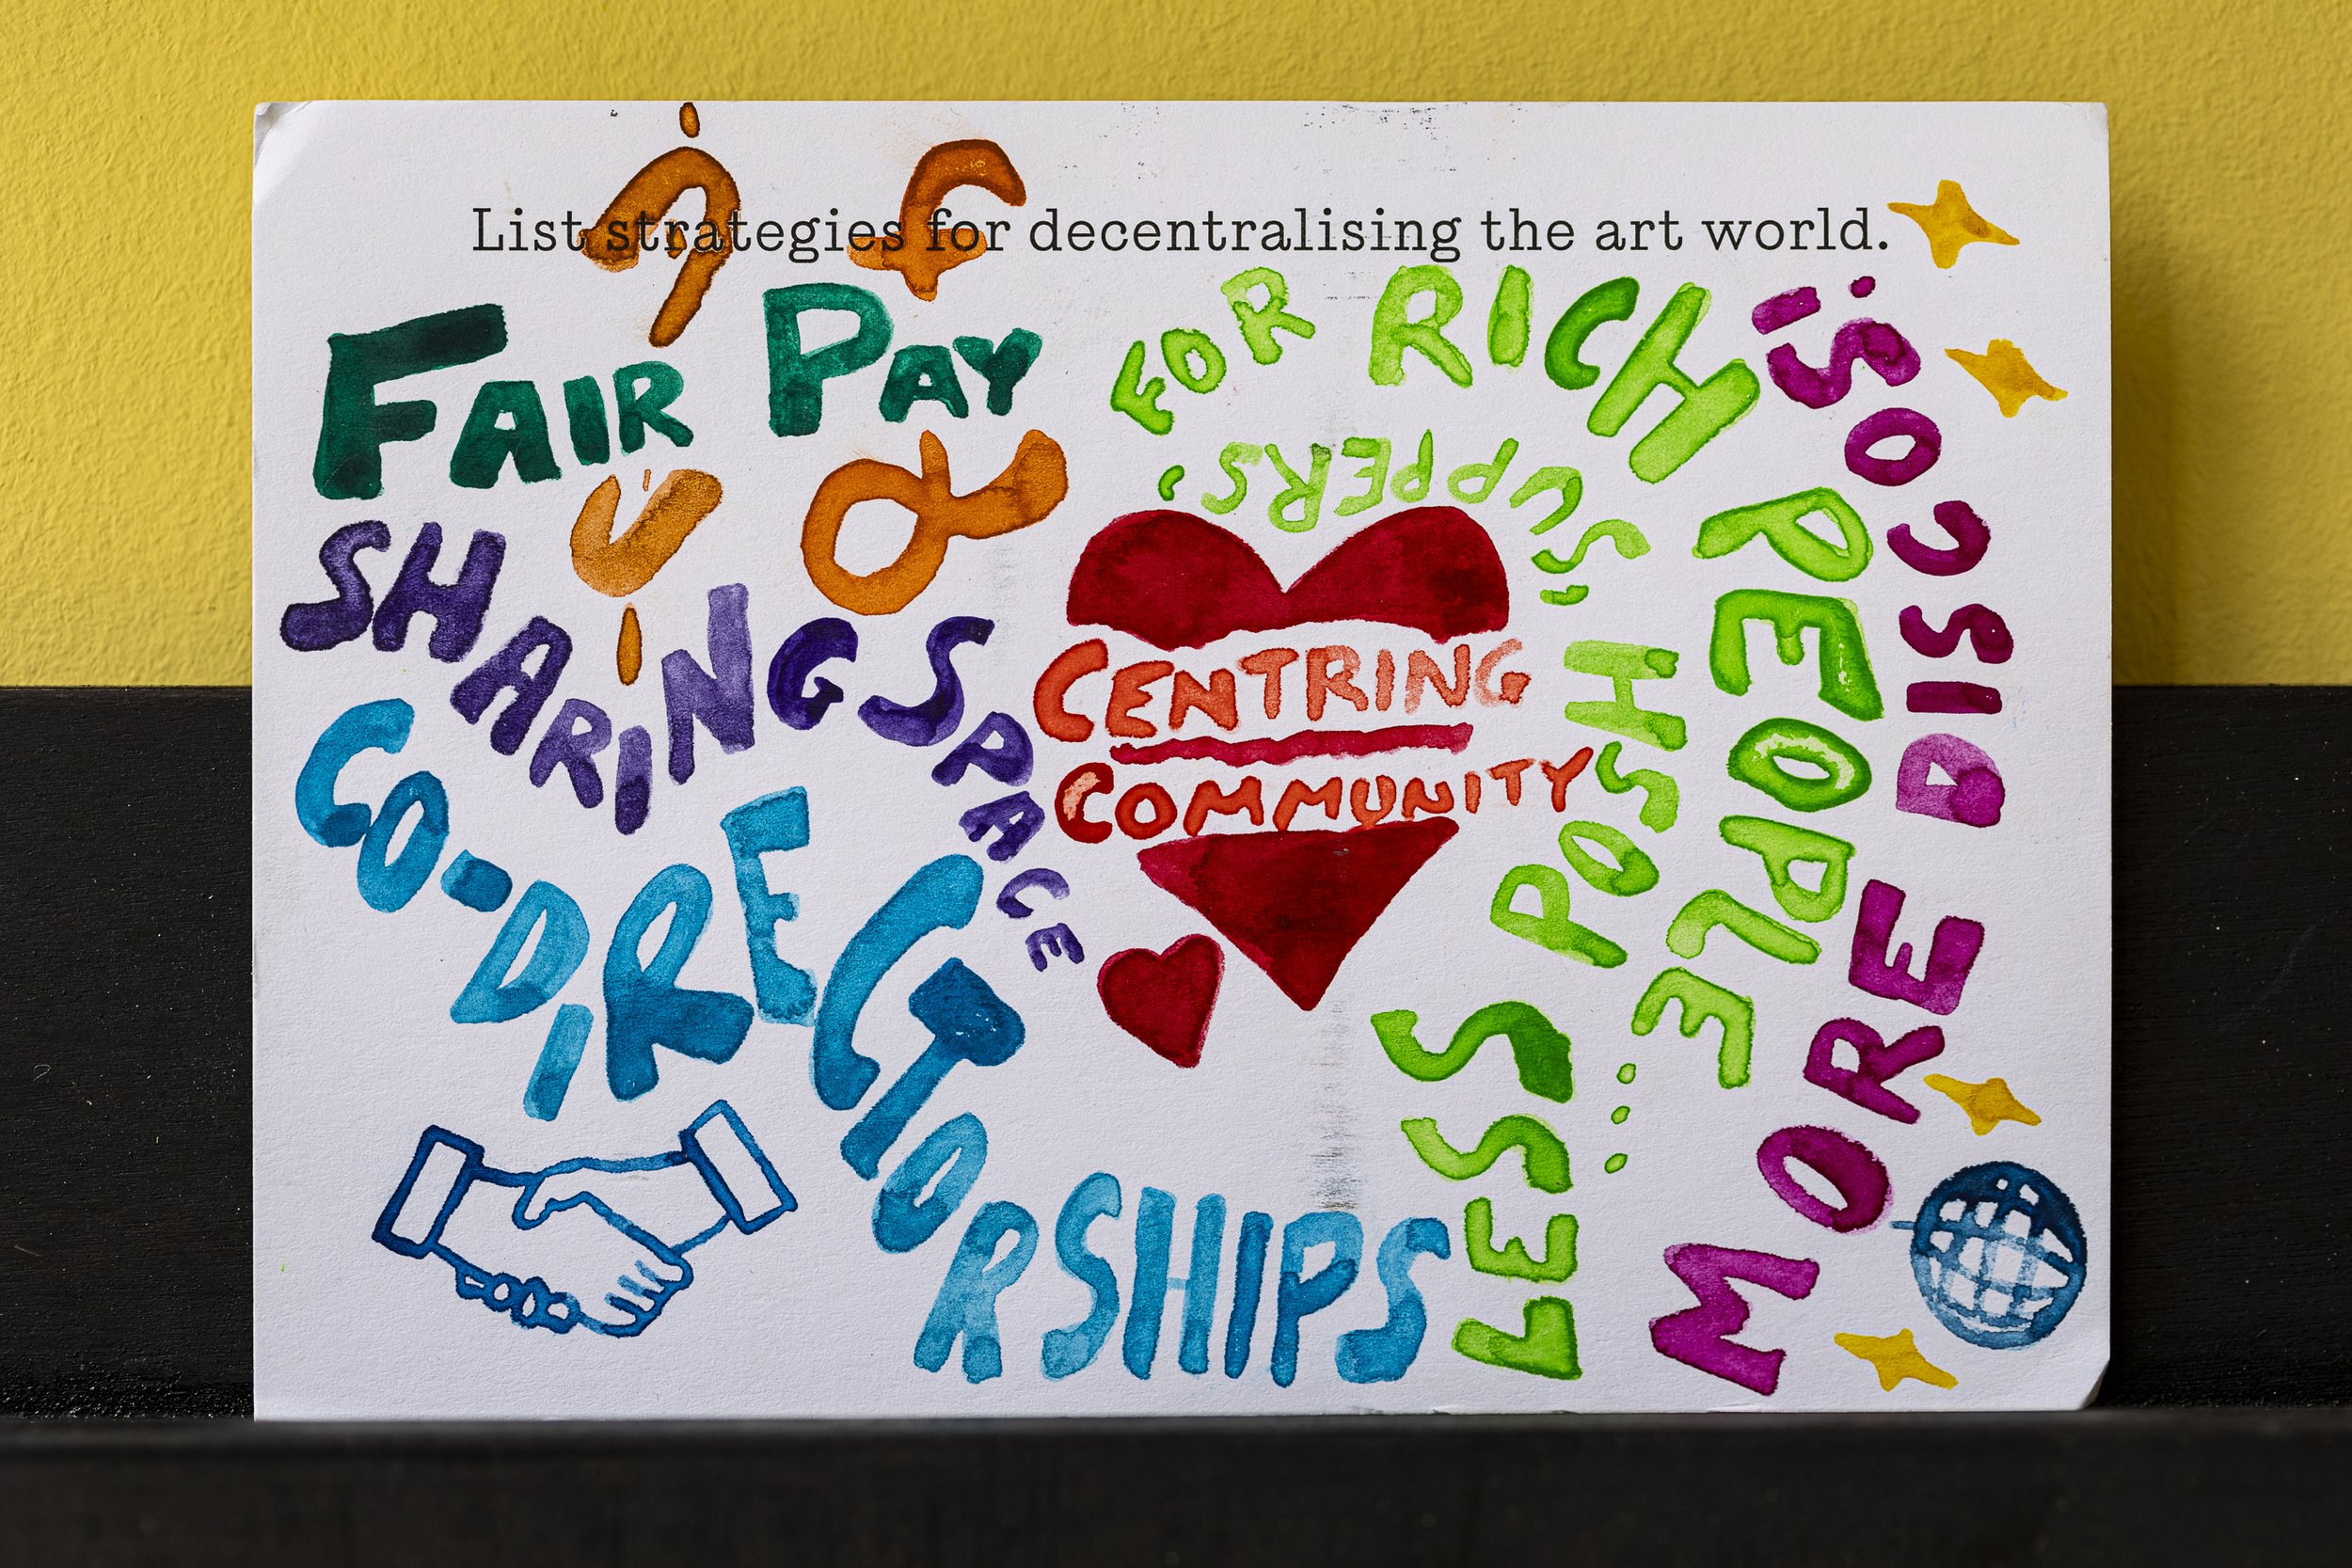 List strategies for decentralising the art world.
$ £
FAIR PAY
SHARING SPACE
CO-DIRECTORSHIPS
CENTRING
COMMUNITY
LESS POSH 'SUPPERS' FOR RICH PEOPLE...
MORE DISCOS!